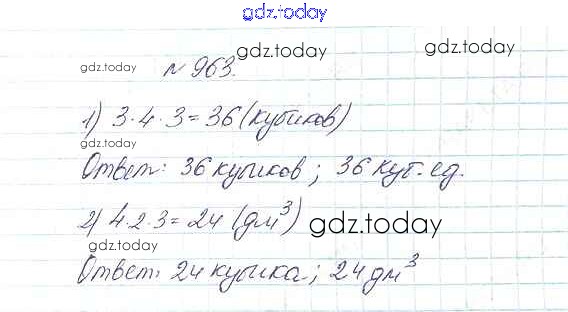 gdz.today
gdz.today gdz.today
gdz.today № 963.
1) 3·4·3=36 (кубиков)
gdz.today
Ответ: 36 кубиков; 36 куб.ед.
2) 4·2·3=24 (дм³) gdz.today
gdz.today
Ответ: 24 кубика; 24 дм³
gdz.today